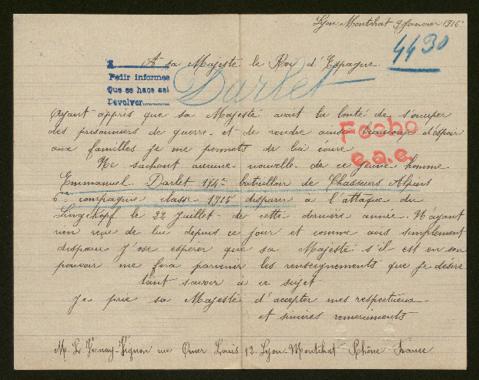 Lyon-Montchat 9 Janvier 1916
4430
A sa Majesté le Roi d'Espagne
Pedir informes
Que se hace así
Devolver
Darlet
Ayant appris que sa Majesté avait la bonté de s'occuper
des prisonniers de guerre et de rendre ainsi d'espoir
aux familles je me permets de lui écrire
Fecho
e.a.e.
Ne sachant aucune nouvelle de ce jeune homme
Emmanuel Darlet 114e bataillon de Chasseurs Alpins
6e compagnie classe 1915 disparu à l'attaque du
Lingekopf le 22 Juillet de cette dernière année. N'ayant
rien reçu de lui depuis ce jour et comme avis simplement
disparu J'ose espérer que sa Majesté s'il est en son
pouvoir me fera parvenir les renseignements que je désire
tant savoir à ce sujet
Je prie sa Majesté d'accepter mes respectueux
et sincères remerciments
M. L. rue Louis 12 Lyon-Montchat Rhône France